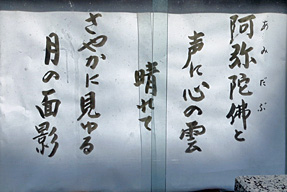 阿弥陀佛と
あみだぶ
声に心の雲
晴れて
さやかに見ゆる
月の面影